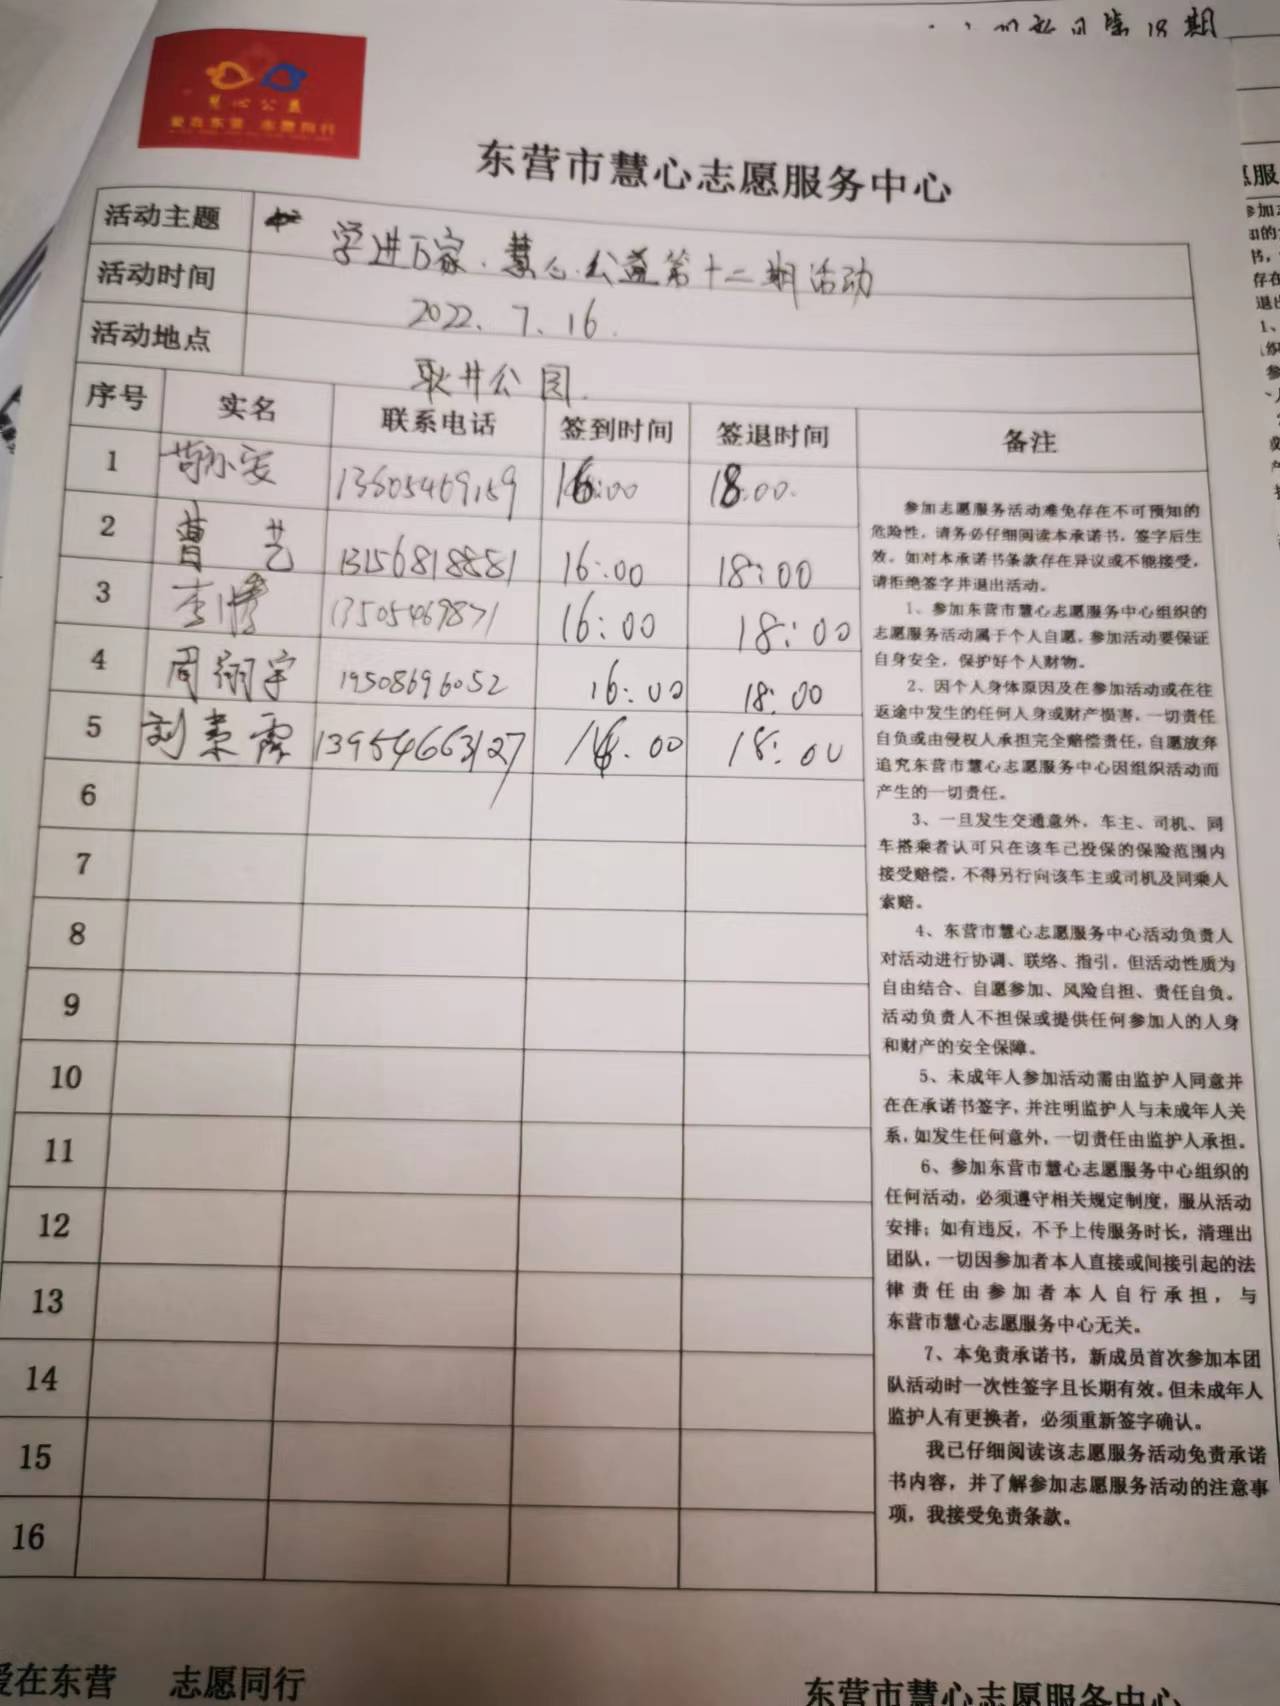 第18期
慧心公益
爱在东营 志愿同行
东营市慧心志愿服务中心
活动主题
学进万家.慧心公益第十二期活动
活动时间
2022.7.16.
活动地点
耿井公园.
序号 实名 联系电话 签到时间 签退时间 备注
1 13605469159 16:00 18:00.
2 曹艺 13156818881 16:00 18:00
3 李博 13505469871 16:00 18:00
4 周翔宇 19508696052 16:00 18:00
5 刘秉霖 13954663127 16:00 18:00
6
7
8
9
10
11
12
13
14
15
16
参加志愿服务活动难免存在不可预知的
危险性，请务必仔细阅读本承诺书，签字后生
效。如对本承诺书条款存在异议或不能接受，
请拒绝签字并退出活动。
1、参加东营市慧心志愿服务中心组织的
志愿服务活动属于个人自愿，参加活动要保证
自身安全，保护好个人财物。
2、因个人身体原因及在参加活动或在往
返途中发生的任何人身或财产损害，一切责任
自负或由侵权人承担完全赔偿责任，自愿放弃
追究东营市慧心志愿服务中心因组织活动而
产生的一切责任。
3、一旦发生交通意外，车主、司机、同
车搭乘者认可只在该车已投保的保险范围内
接受赔偿，不得另行向该车主或司机及同乘人
索赔。
4、东营市慧心志愿服务中心活动负责人
对活动进行协调、联络、指引，但活动性质为
自由结合、自愿参加、风险自担、责任自负。
活动负责人不担保或提供任何参加人的人身
和财产的安全保障。
5、未成年人参加活动需由监护人同意并
在在承诺书签字，并注明监护人与未成年人关
系，如发生任何意外，一切责任由监护人承担。
6、参加东营市慧心志愿服务中心组织的
任何活动，必须遵守相关规定制度，服从活动
安排；如有违反，不予上传服务时长，清理出
团队，一切因参加者本人直接或间接引起的法
律责任由参加者本人自行承担，与
东营市慧心志愿服务中心无关。
7、本免责承诺书，新成员首次参加本团
队活动时一次性签字且长期有效。但未成年人
监护人有更换者，必须重新签字确认。
我已仔细阅读该志愿服务活动免责承诺
书内容，并了解参加志愿服务活动的注意事
项，我接受免责条款。
爱在东营 志愿同行
东营市慧心志愿服务中心